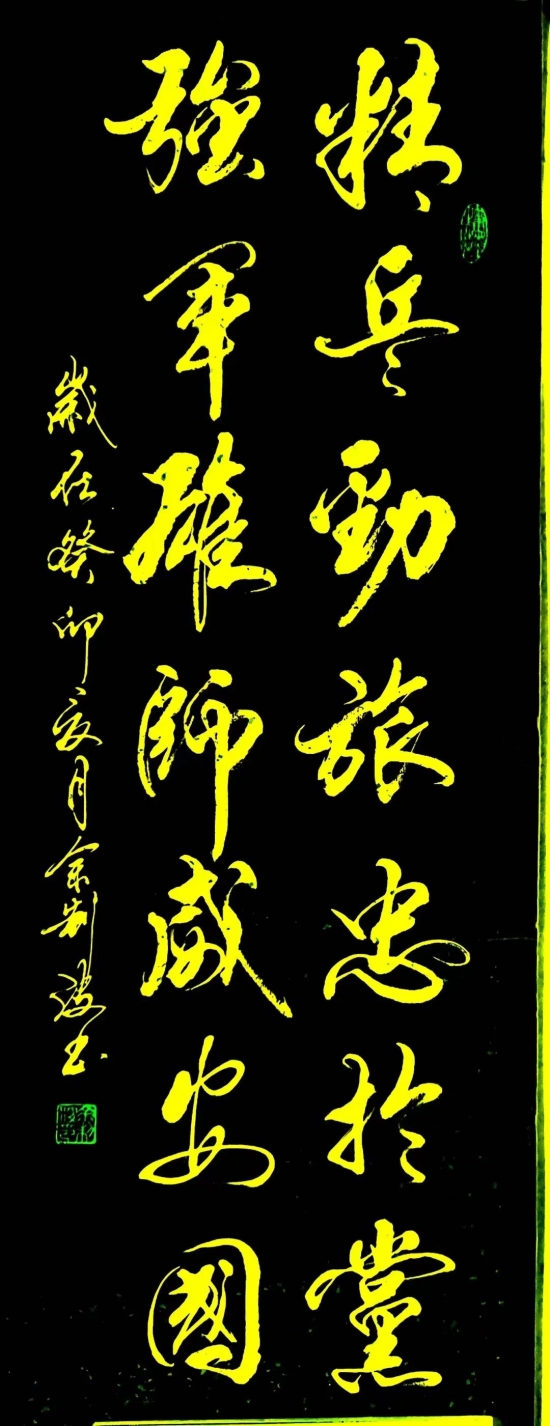 精兵勁旅忠於黨
強軍雄師威安國
歲在癸卯亥月余制波書